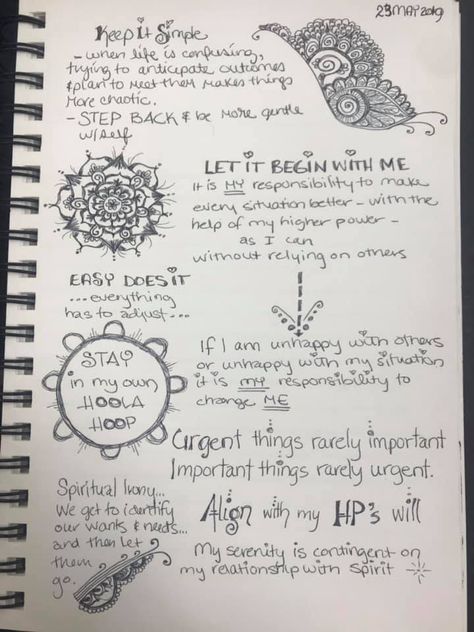 23 MAY 2019
Keep It Simple
- when life is confusing,
trying to anticipate outcomes
& plan to meet them makes things
more chaotic.
- STEP BACK & be more gentle
w/self
LET IT BEGIN WITH ME
It is MY responsibility to make
every situation better - with the
help of my higher power -
as I can
without relying on others
EASY DOES IT
... everything
has to adjust ....
If I am unhappy with others
or unhappy with my situation
it is my responsibility to
change ME
STAY
in my own
HOOLA
HOOP
Urgent things rarely important
Important things rarely urgent.
Spiritual Irony...
We get to identify
our wants & needs...
and then let
them
go.
Align with my HP's will
My serenity is contingent on
my relationship with spirit